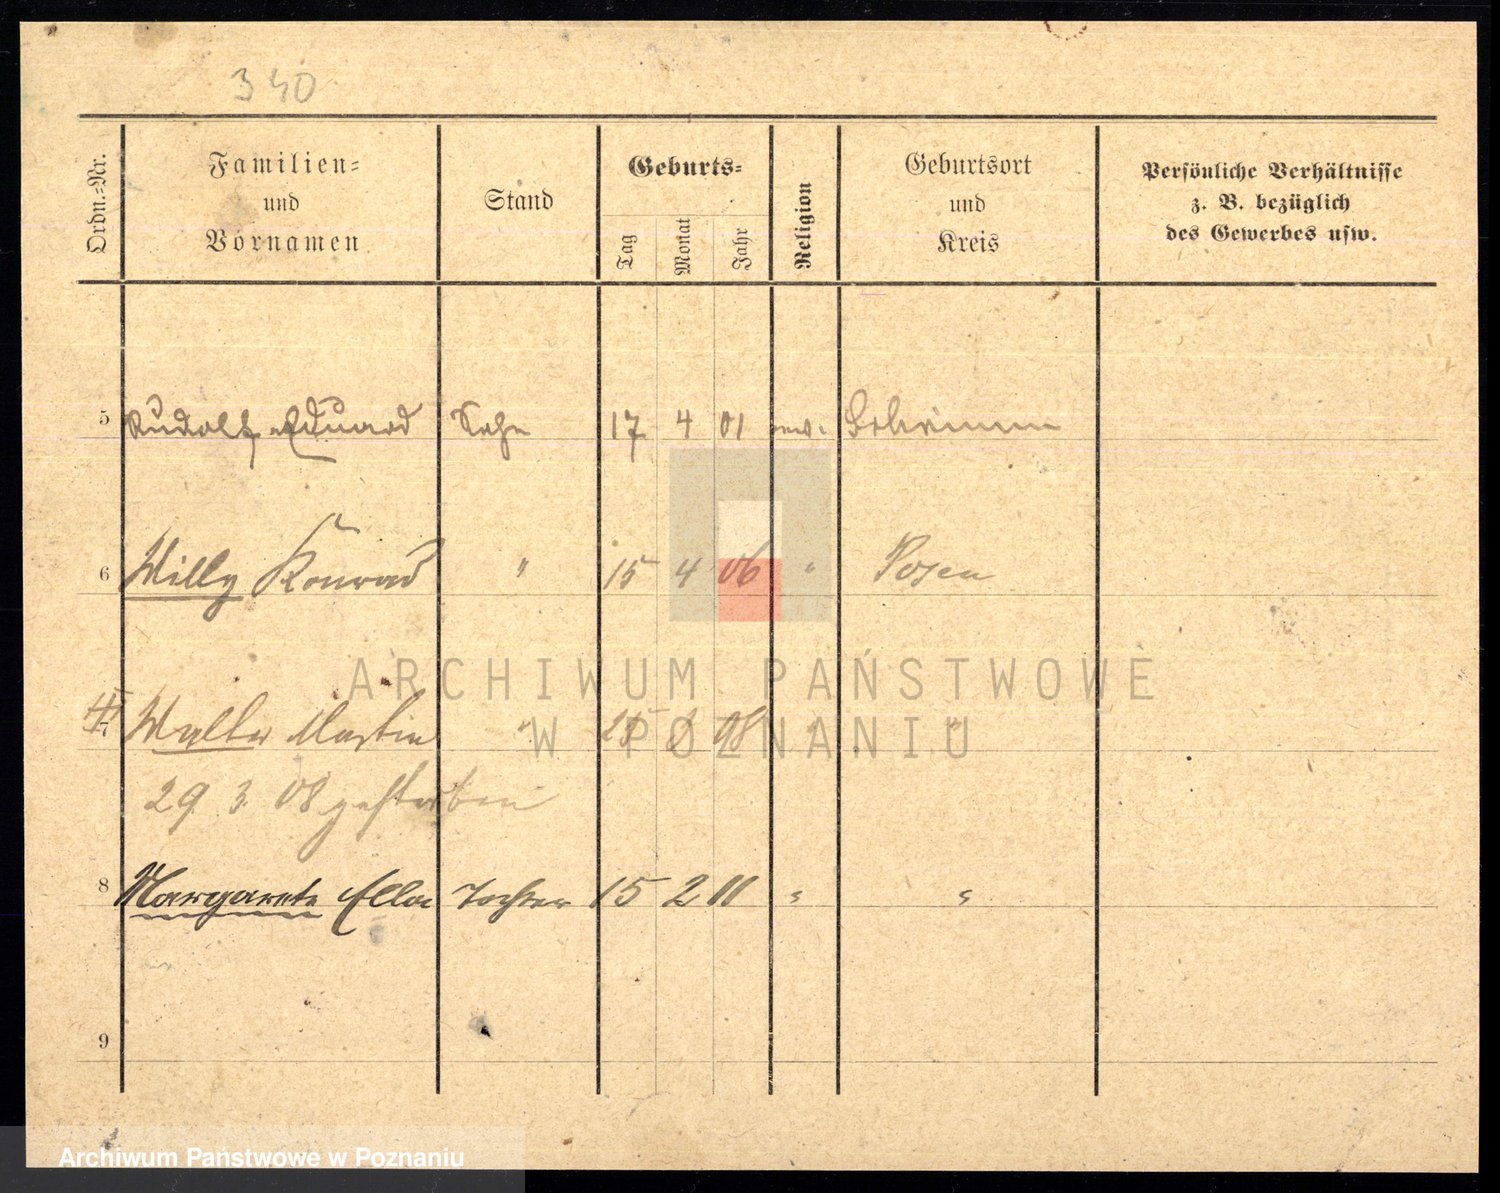 340
Ordn.-Nr.
Familien-
und
Vornamen
Stand
Geburts-
Tag
Monat
Jahr
Religion
Geburtsort
und
Kreis
Persönliche Verhältnisse
z. B. bezüglich
des Gewerbes usw.
5 Rudolf Eduard Sohn 17 4 01 Schrimm
6 Willy Konrad " 15 4 06 " Posen
7 Walter Martin " 25 08 "
29. 3. 08 gestorben
8 Margarete Ella Tochter 15 2 11 " "
9
ARCHIWUM PAŃSTWOWE
W POZNANIU
Archiwum Państwowe w Poznaniu